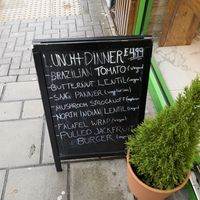 LUNCH + DINNER £4.99
- BRAZILIAN TOMATO (vegan)
- BUTTERNUT LENTIL (vegan)
- SAAG PANNER (vegetarian)
- MUSHROOM STROGANOFF
- NORTH INDIAN LENTIL (vegan)
- FALAFEL WRAP (vegan)
- PULLED JACKFRUIT
BURGER (vegan)